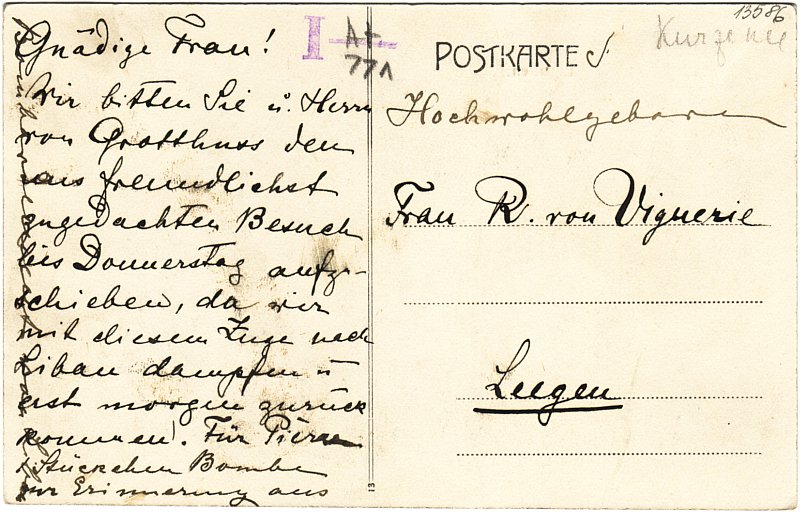 Gnädige Frau!
Wir bitten Sie u. Herrn
von Grotthuss den
uns freundlichst
zugedachten Besuch
bis Donnerstag aufzu-
schieben, da wir
mit diesem Zuge nach
Libau dampfen u
erst morgen zurück
kommen! Für
1 Stückchen Bombe
zur Erinnerung aus
I
A±
771
13586
POSTKARTE
Hochwohlgeboren
Frau R. von Vignerie
Leegen
13